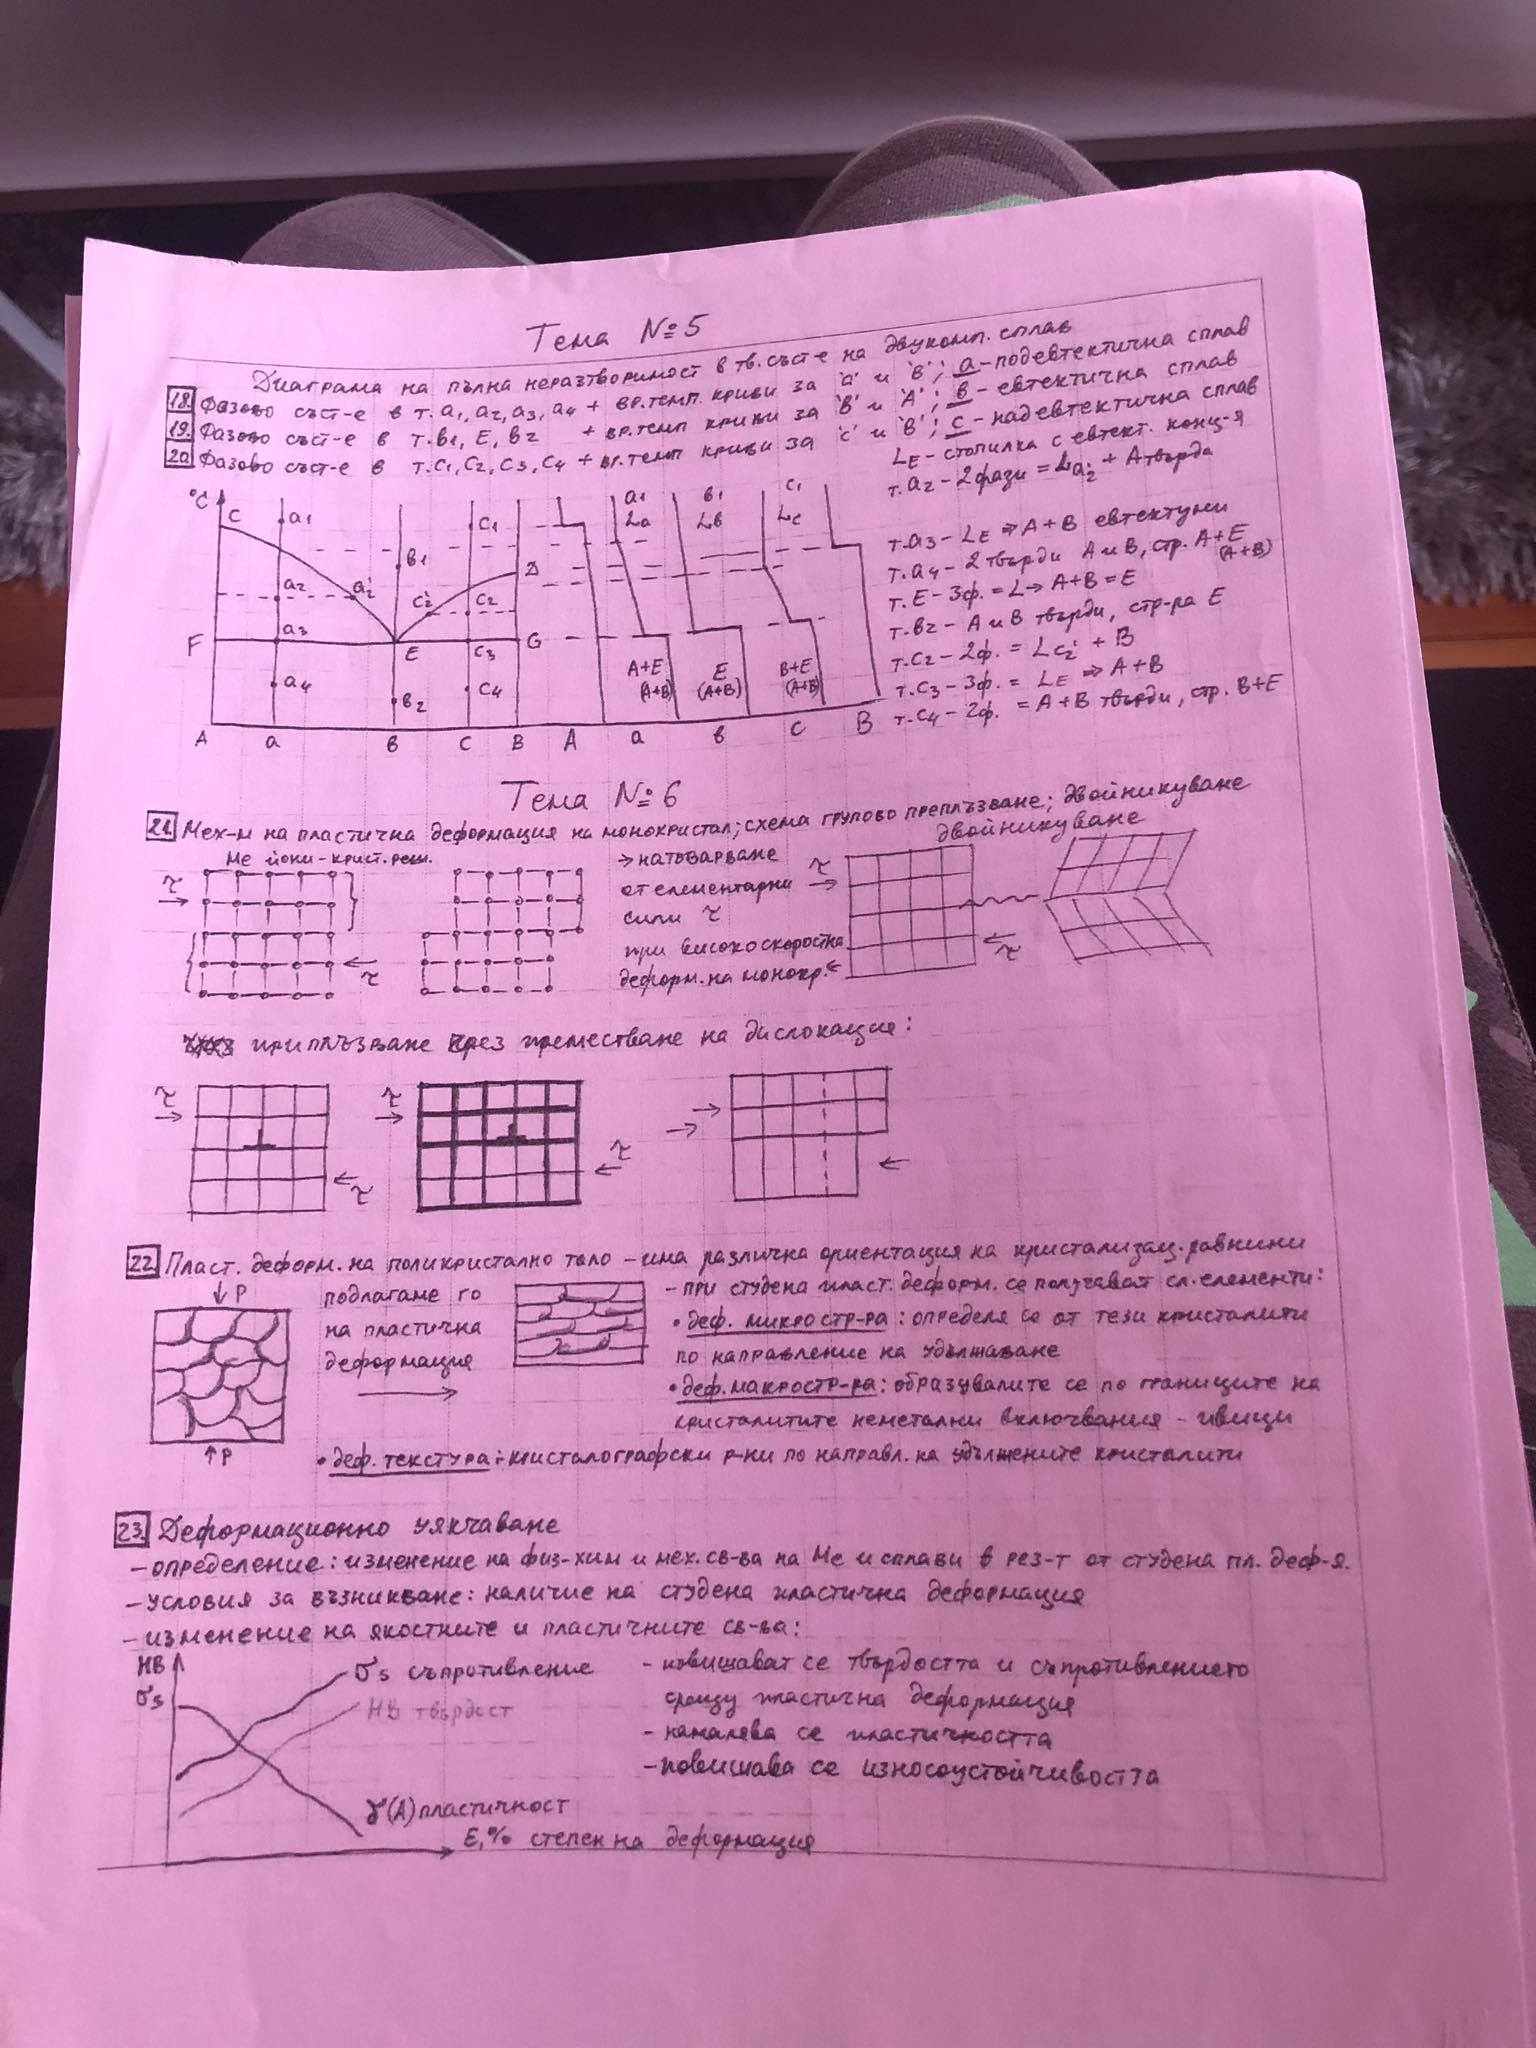 Тема №5
Диаграма на пълна неразтворимост в тв. съст-е на двукомп. сплав
18. Фазово съст-е в т. a1, a2, a3, a4 + вр. темп. криви за 'a' и 'B'; a - подевтектична сплав
19. Фазово съст-е в т. в1, E, в2 + вр. темп криви за 'B' и 'A'; в - евтектична сплав
20 Фазово съст-е в т. c1, c2, c3, c4 + вр. темп криви за 'c' и 'B'; c - надевтектична сплав
LE - стопилка с евтект. конц-я
т. a2 - 2 фази = La2' + A твърда
т. a3 - LE => A+B евтектуни
т. a4 - 2 твърди A и B, стр. A+E (A+B)
т. E - 3ф. = L -> A+B = E
т. в2 - A и B твърди, стр-ра E
т. c2 - 2ф. = Lc2' + B
т. c3 - 3ф. = LE => A+B
т. c4 - 2ф. = A+B твърди, стр. B+E
°C C a1 c1 a1 в1 c1
La Lв Lc
в1 D
a2 a2' c2' c2
F a3 E c3 G
a4 в2 c4 A+E (A+B) E (A+B) B+E (A+B)
A a в c B A a в c B
Тема №6
21. Мех-м на пластична деформация на монокристал; схема групово преплъзване; двойникуване
Ме йони - крист. реш.
двойникуване
τ τ
-> натоварване
от елементарни
сили τ
при високоскоростна
деформ. на монокр.
τ τ
приплъзване чрез преместване на дислокация:
τ τ τ τ
22. Пласт. деформ. на поликристално тяло - има различна ориентация на кристализац. равнини
P
подлагаме го
на пластична
деформация
P
- при студена пласт. деформ. се получават сл. елементи:
• деф. микростр-ра: определя се от тези кристалити
по направление на удължаване
• деф. макростр-ра: образувалите се по границите на
кристалитите неметални включвания - ивици
• деф. текстура: кристалографски р-ни по направл. на удължените кристалити
23. Деформационно уякчаване
- определение: изменение на физ-хим и мех. св-ва на Ме и сплави в рез-т от студена пл. деф-я.
- условия за възникване: наличие на студена пластична деформация
- изменение на якостните и пластичните св-ва:
HB
σs
σs съпротивление
HB твърдост
γ(A) пластичност
E,% степен на деформация
- повишават се твърдостта и съпротивлението
срещу пластична деформация
- намалева се пластичността
- повишава се износоустойчивостта